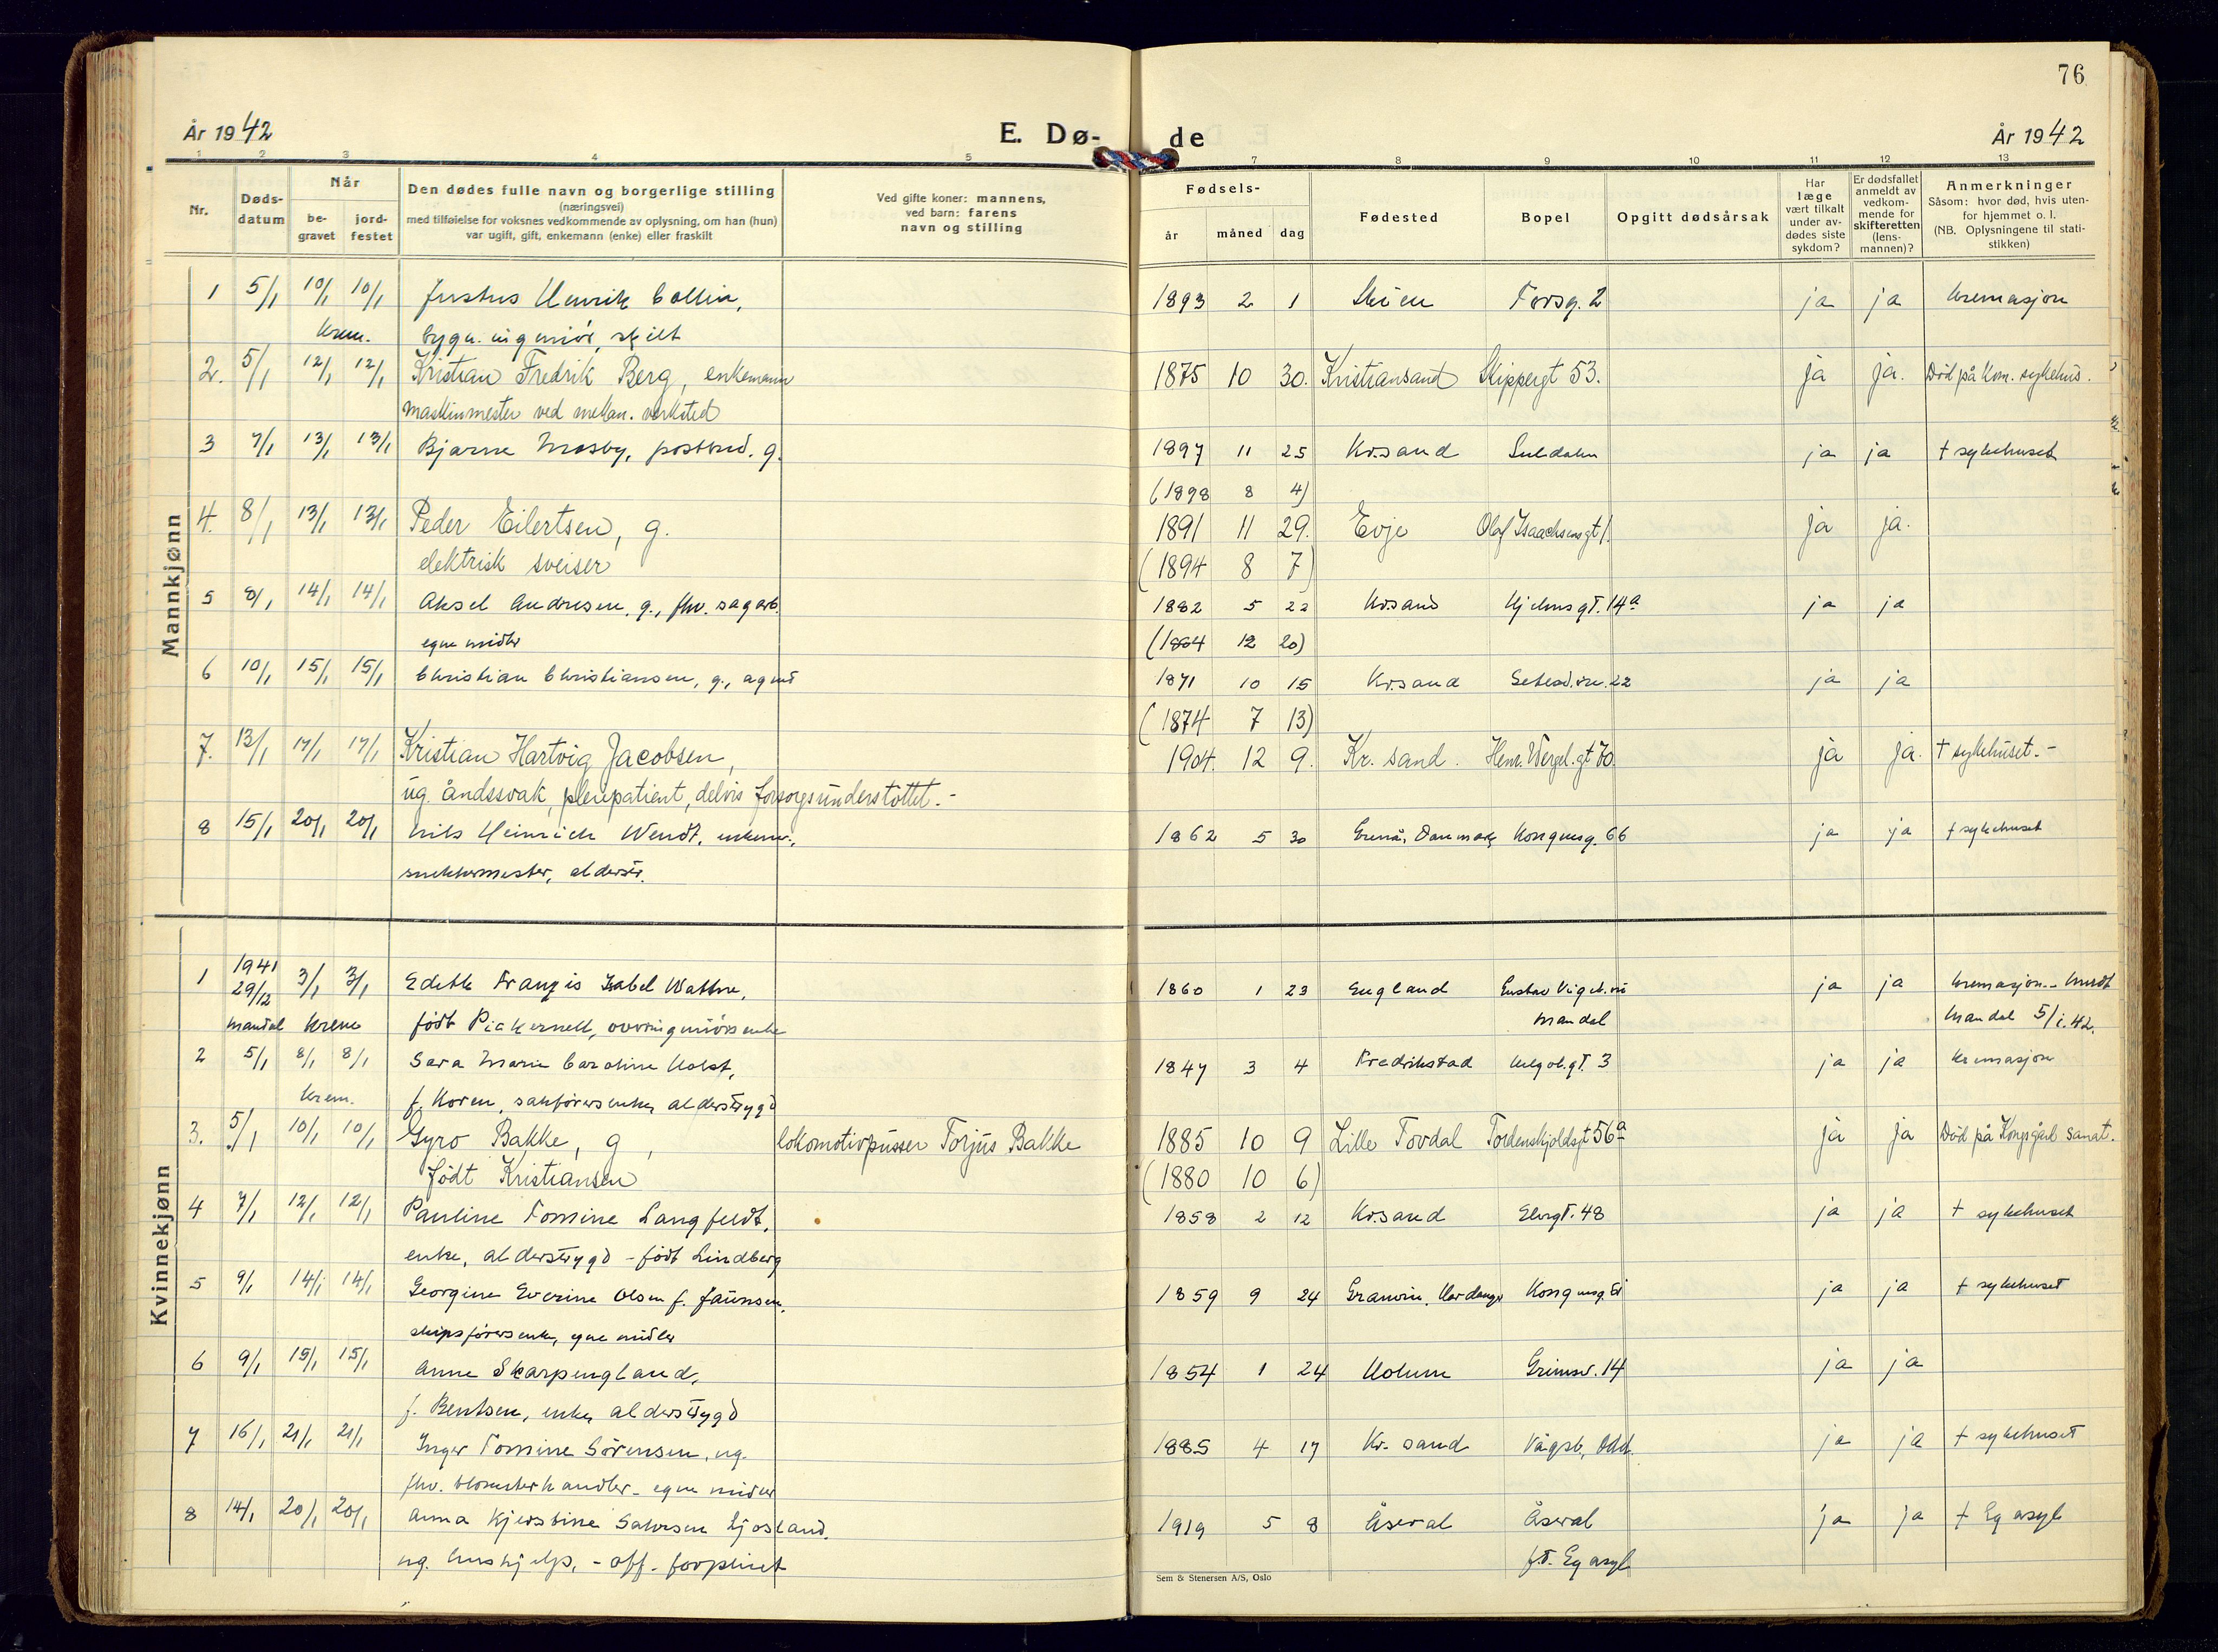 76
År 1942
E. Dø-
de
År 1942
1 2 3 4 5 7 8 9 10 11 12 13
Nr.
Døds-
datum
Når
be-
gravet
jord-
festet
Den dødes fulle navn og borgerlige stilling
(næringsvei)
med tilføielse for voksnes vedkommende av oplysning, om han (hun)
var ugift, gift, enkemann (enke) eller fraskilt
Ved gifte koner: mannens,
ved barn: farens
navn og stilling
Fødsels-
år måned dag
Fødested
Bopel
Opgitt dødsårsak
Har
læge
vært tilkalt
under av-
dødes siste
sykdom?
Er dødsfallet
anmeldt av
vedkom-
mende for
skifteretten
(lens-
mannen)?
Anmerkninger
Såsom: hvor død, hvis uten-
for hjemmet o. l.
(NB. Oplysningene til stati-
stikken)
Mannkjønn
1 5/1 10/1 10/1 Justus Henrik Collin, 1893 2 1 Skien Torsg. 2 ja ja kremasjon
krem. bygn. ingeniör, skilt
2. 5/1 12/1 12/1 Kristian Fredrik Berg, enkemann 1875 10 30. Kristiansand Skippergt 53. ja ja. Död på Kom. sykehus.
maskinmester ved mekan. verksted
3 7/1 13/1 13/1 Bjarne Mosby, postbud. g. 1897 11 25 Kr.sand Suldalen ja ja † sykehuset
(1898 8 4)
4. 8/1 13/1 13/1 Peder Eilertsen, g. 1891 11 29. Evje Olaf Isaachsensgt 1. ja ja.
elektrisk sveiser (1894 8 7)
5 8/1 14/1 14/1 Aksel Andresen, g., fhv. sagarb. 1882 5 22 Kr.sand Kjelmsgt. 14a ja ja
egne midler (1884 12 20)
6 10/1 15/1 15/1 Christian Christiansen, g., agent 1871 10 15 Kr.sand Setesd.vn. 22 ja ja
(1874 7 13)
7. 13/1 17/1 17/1 Kristian Hartvig Jacobsen, 1904. 12 9. Kr. sand. Henr. Wergel. gt 70. ja ja. † sykehuset.-
ug. åndssvak, pleiepatient, delvis forsorgsunderstöttet.-
8 15/1 20/1 20/1 Nils Heinrich Wendt, enkem., 1862 5 30 Grenå, Danmark Kongensg. 66 ja ja † sykehuset
snekkermester, alderstr.
Kvinnekjønn
1 1941 29/12 3/1 3/1 Edith Frangis Isabel Wattne, 1860 1 23 England Gustav Vigel. vei ja ja kremasjon
Mandal krem födt Pickernell, overingeniörs enke Mandal Mandal 5/1.42.
2 5/1 8/1 8/1 Sara Marie Caroline Holst, 1847 3 4 Fredrikstad Helgol.gt. 3 ja ja kremasjon
krem. f. Koren, sakförersenke, alderstrygd
3. 5/1 10/1 10/1 Gyro Bakke, g, lokomotivpusser Torjus Bakke 1885 10 9 Lille Tovdal Tordenskjoldsgt 56a ja ja Död på Kongsgård sanat.
födt Kristiansen (1880 10 6)
4 7/1 12/1 12/1 Pauline Tomine Langfeldt, 1858 2 12 Kr.sand Elvegt. 48 ja ja † sykehuset
enke, alderstrygd - födt Lindberg
5 9/1 14/1 14/1 Georgine Everine Olsen f. Jaunsen, 1859 9 24 Granvin, Hardanger Kongensg. ja ja † sykehuset
skipsförersenke, egne midler
6 9/1 15/1 15/1 Anne Skarpengland, 1854 1 24 Holum Grimsv. 14 ja ja
f. Bentsen, enke, alderstrygd
7 16/1 21/1 21/1 Inger Tomine Sörensen, ug. 1885 4 17 Kr. sand Vågsb, Odd. ja ja † sykehuset
fhv. blomsterhandler - egne midler
8 14/1 20/1 20/1 Anna Kjerstine Salvesen Ljosland. 1919 5 8 Åseral Åseral ja ja † Eg asyl
ug. hushjelp, - off. forpleiet f.t. Eg asyl
Sem & Stenersen A/S, Oslo